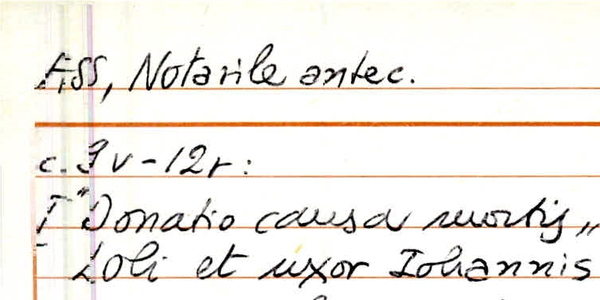 ASS, Notarile antec.
c. 9v-12r:
I "Donatio causa mortis"
Loli et uxor Iohannis